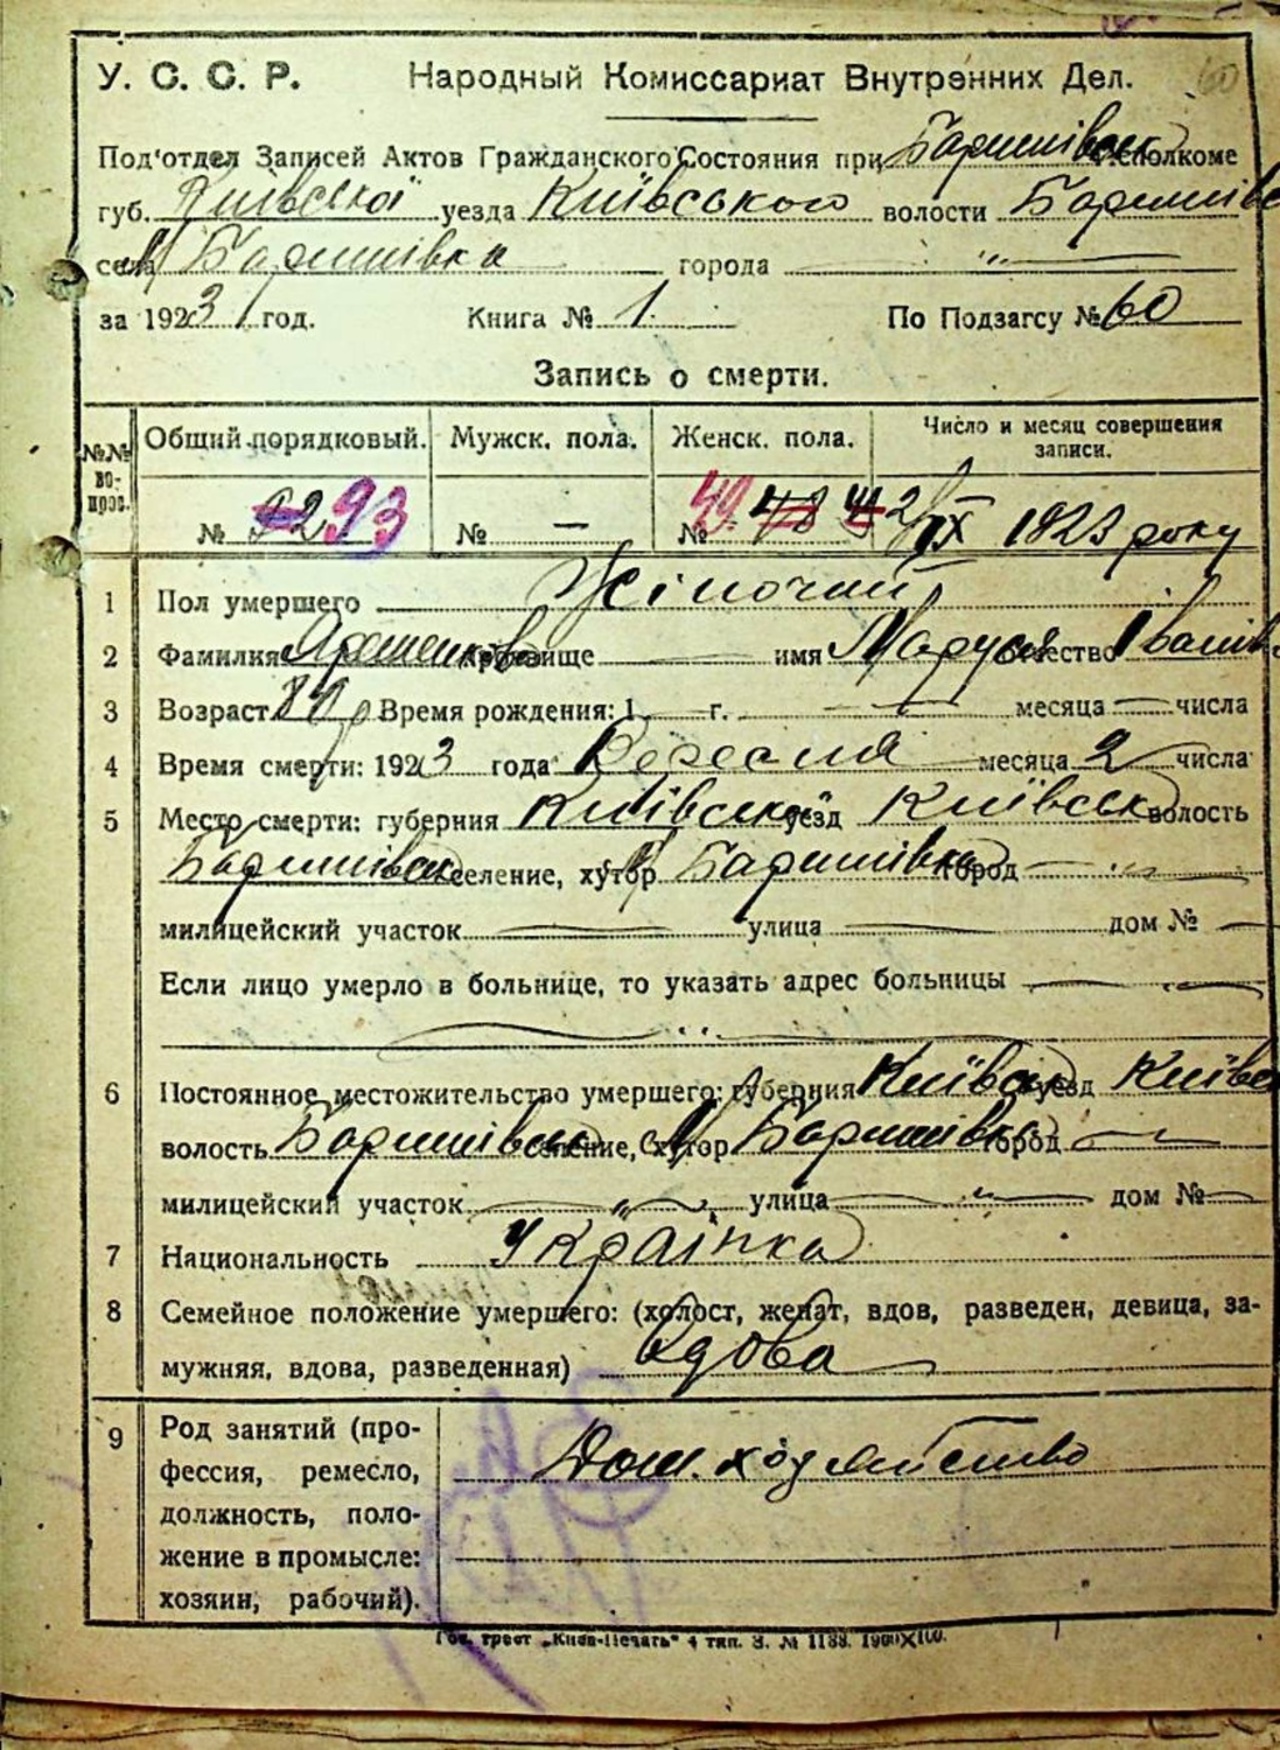 У. С. С. Р. Народный Комиссариат Внутренних Дел.
Под'отдел Записей Актов Гражданского Состояния при Баришівськ Исполкоме
губ. Київської уезда Київського волости Баришівс
села М Баришівка города „
за 1923 год. Книга № 1. По Подзагсу № 60
Запись о смерти.
№№ вопрос. Общий порядковый. Мужск. пола. Женск. пола. Число и месяц совершения записи.
№ 92 93 № — № 49 48 2/IX 1923 року
1 Пол умершего Жіночий
2 Фамилия прозвище имя Маруся отчество Іванівн
3 Возраст 80 р Время рождения: 1 — г. — месяца — числа
4 Время смерти: 1923 года Вересня месяца 2 числа
5 Место смерти: губерния Київській уезд Київськ волость
Баришівськ селение, хутор М Баришівка город — „ —
милицейский участок — улица — дом № —
Если лицо умерло в больнице, то указать адрес больницы —
6 Постоянное местожительство умершего: губерния Київськ уезд Київсь
волость Баришівськ селение, хутор М Баришівка город —
милицейский участок — „ — улица — „ — дом № —
7 Национальность Українка
8 Семейное положение умершего: (холост, женат, вдов, разведен, девица, за-
мужняя, вдова, разведенная) Вдова
9 Род занятий (про-
фессия, ремесло,
должность, поло-
жение в промысле:
хозяин, рабочий).
Дом. хозяйство
Гос. трест „Киев-Печать" 4 тип. З. № 1188. 1900X100.